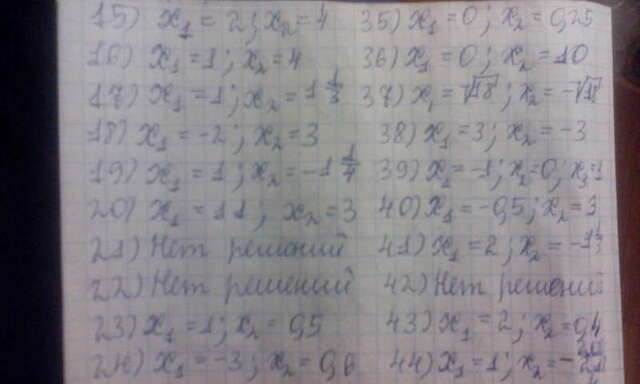 15) x₁ = 2; x₂ = 4
16) x₁ = 1; x₂ = 4
17) x₁ = 1; x₂ = 1 1/3
18) x₁ = -2; x₂ = 3
19) x₁ = 1; x₂ = -1 1/4
20) x₁ = 11; x₂ = 3
21) Нет решений
22) Нет решений
23) x₁ = 1; x₂ = 0,5
24) x₁ = -3; x₂ = 0,6
35) x₁ = 0; x₂ = 0,25
36) x₁ = 0; x₂ = 10
37) x₁ = √18; x₂ = -√18
38) x₁ = 3; x₂ = -3
39) x₁ = -1; x₂ = 0; x₃ = 1
40) x₁ = -0,5; x₂ = 3
41) x₁ = 2; x₂ =
42) Нет решений
43) x₁ = 2; x₂ = 0,4
44) x₁ = 1; x₂ =